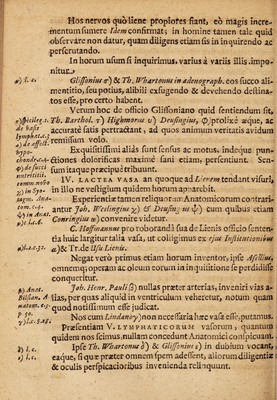 Hos nervos quò liene propiores fiant, eò magis incre-
mentum sumere Idem confirmat; in homine tamen tale quid
observare non datur, quam diligens etiam sis in inquirendo ac
perscrutando.
In horum usum si inquirimus, varius à variis illis impo-
nitur.
a) l. c.
Glissonius & Th. Whartonus in adenograph. eos succo ali-
mentitio, seu potius, alibili exsugendo & devehendo destina-
tos esse, pro certo habent.
Verum hoc de officio Glissoniano quid sentiendum sit,
Th. Bartholinus Highmorus & Deusingius, prolixè æque, ac
accuratè satis pertractant, ad quos animum veritatis avidum
remissum volo.
Exquisitissimi aliàs sunt sensus ac motus, indeque pun-
ctiones dolorificas maximè sani etiam, persentiunt. Sen-
sum itaque præcipuè tribuunt.
IV. LACTEA VASA, an quoque ad Lienem tendant visuri,
in illo ne vestigium quidem horum apparebit.
Experientiæ tamen reliquorum Anatomicorum contrari-
antur Joh. Weslingius & Deusing cum quibus etiam
Conringius convenire videtur.
C. Hoffmannus pro roborandâ sua de Lienis officio senten-
tia huic largitur talia vasa, ut colligimus ex ejus Institutionibus
& Tr. de Usu Lienis.
Negat verò primus etiam horum inventor, ipse Asellius,
omnemq; operam ac oleum eorum in inquisitione se perdidisse
conqueritur.
Joh. Henr. Pauli præter arterias, inveniri vias a-
lias, per quas aliquid in ventriculum veheretur, notum quam
quod notissimum esse judicat.
Nos cum Lindano non necessaria hæc vasa esse, putamus.
Præsentiam V. LYMPHATICORUM vasorum, quantum
quidem nos scimus, nullam concedunt Anatomici conspicuam.
Ipse Th. Whartonus & Glissonius in dubium vocant,
eaque, si quæ præter omnem spem adessent, aliorum diligentiæ
& oculis perspicacioribus invenienda relinquunt.